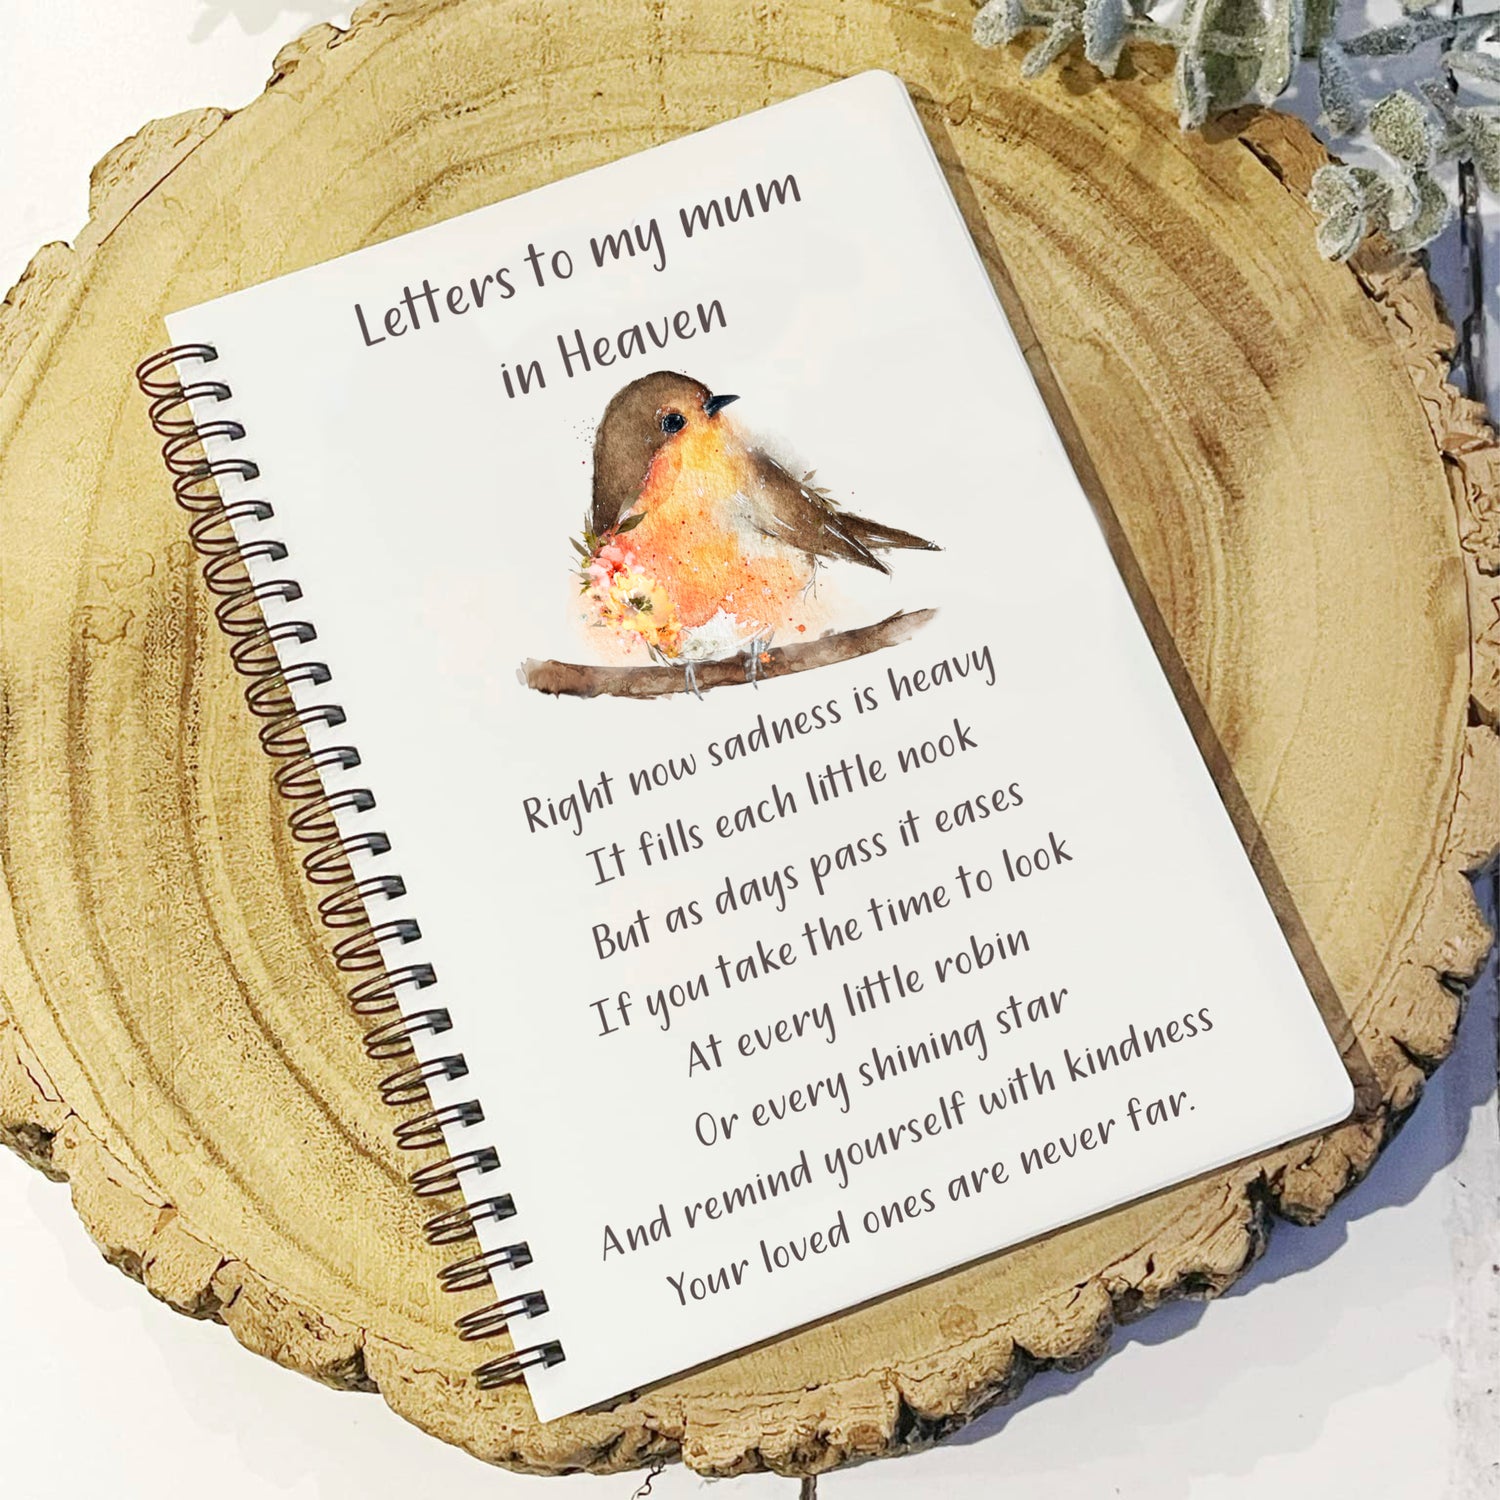 Letters to my mum
in Heaven
Right now sadness is heavy
It fills each little nook
But as days pass it eases
If you take the time to look
At every little robin
Or every shining star
And remind yourself with kindness
Your loved ones are never far.